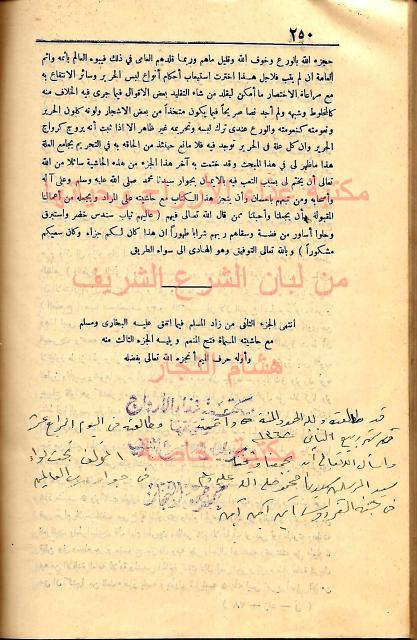 ٢٥٠
حجزه الله بالورع وخوف الله وقليل ماهم وربما قلدهم العامى في ذلك فيبوء العالم بإثمه واثم
العامة ان لم يتب فلاجل هذا اخترت استيعاب أحكام أنواع لبس الحرير وسائر الانتفاع به
مع مراعاة الاختصار ما أمكن ليقلد من شاء التقليد بعض الاقوال فيما جرى فيه الخلاف منه
كالمخلوط وشبهه ولم أجد نصا صريحا فيما يكون متخذا من بعض الاشجار ولونه كلون الحرير
ونعومته كنعومته والورع عندى ترك لبسه وتحريمه غير ظاهر الا اذا ثبت أنه يروج كرواج
الحرير وان كل علة فى الحرير توجد فيه فلا مانع حينئذ من الحاقه به في التحريم بجامع العلة
هذا ماظهر لى في هذا المبحث وقد ختمت به آخر هذا الجزء من هذه الحاشية سائلا من الله
تعالى أن يختم لى بسبب التعب فيه بالايمان بجوار سيدنا محمد صلى الله عليه وسلم وعلى آله
وأصحابه ومن تبعهم باحسان وأن ينجز هذا الكتاب مع حاشيته على المراد ويجعله من أعمالنا
المقبولة وأن يجعلنا وأحبتنا ممن قال الله تعالى فيهم ( عاليهم ثياب سندس خضر واستبرق
وحلوا أساور من فضة وسقاهم ربهم شرابا طهورا ان هذا كان لكم جزاء وكان سعيكم
مشكورا ) وبالله تعالى التوفيق وهو الهادى الى سواء الطريق
انتهى الجزء الثانى من زاد المسلم فيما اتفق عليه البخارى ومسلم
مع حاشيته المسماة فتح المنعم ويليه الجزء الثالث منه
وأوله حرف الميم أنجزه الله تعالى بفضله
من لبان الشرع الشريف
هشام النجار
مكتبة خاصة
قد طالعته ولله الحمد والمنة
واسأل الله تعالى أن يجمعنا
سيد المرسلين سيدنا محمد صلى الله عليه وسلم
آمين آمين آمين